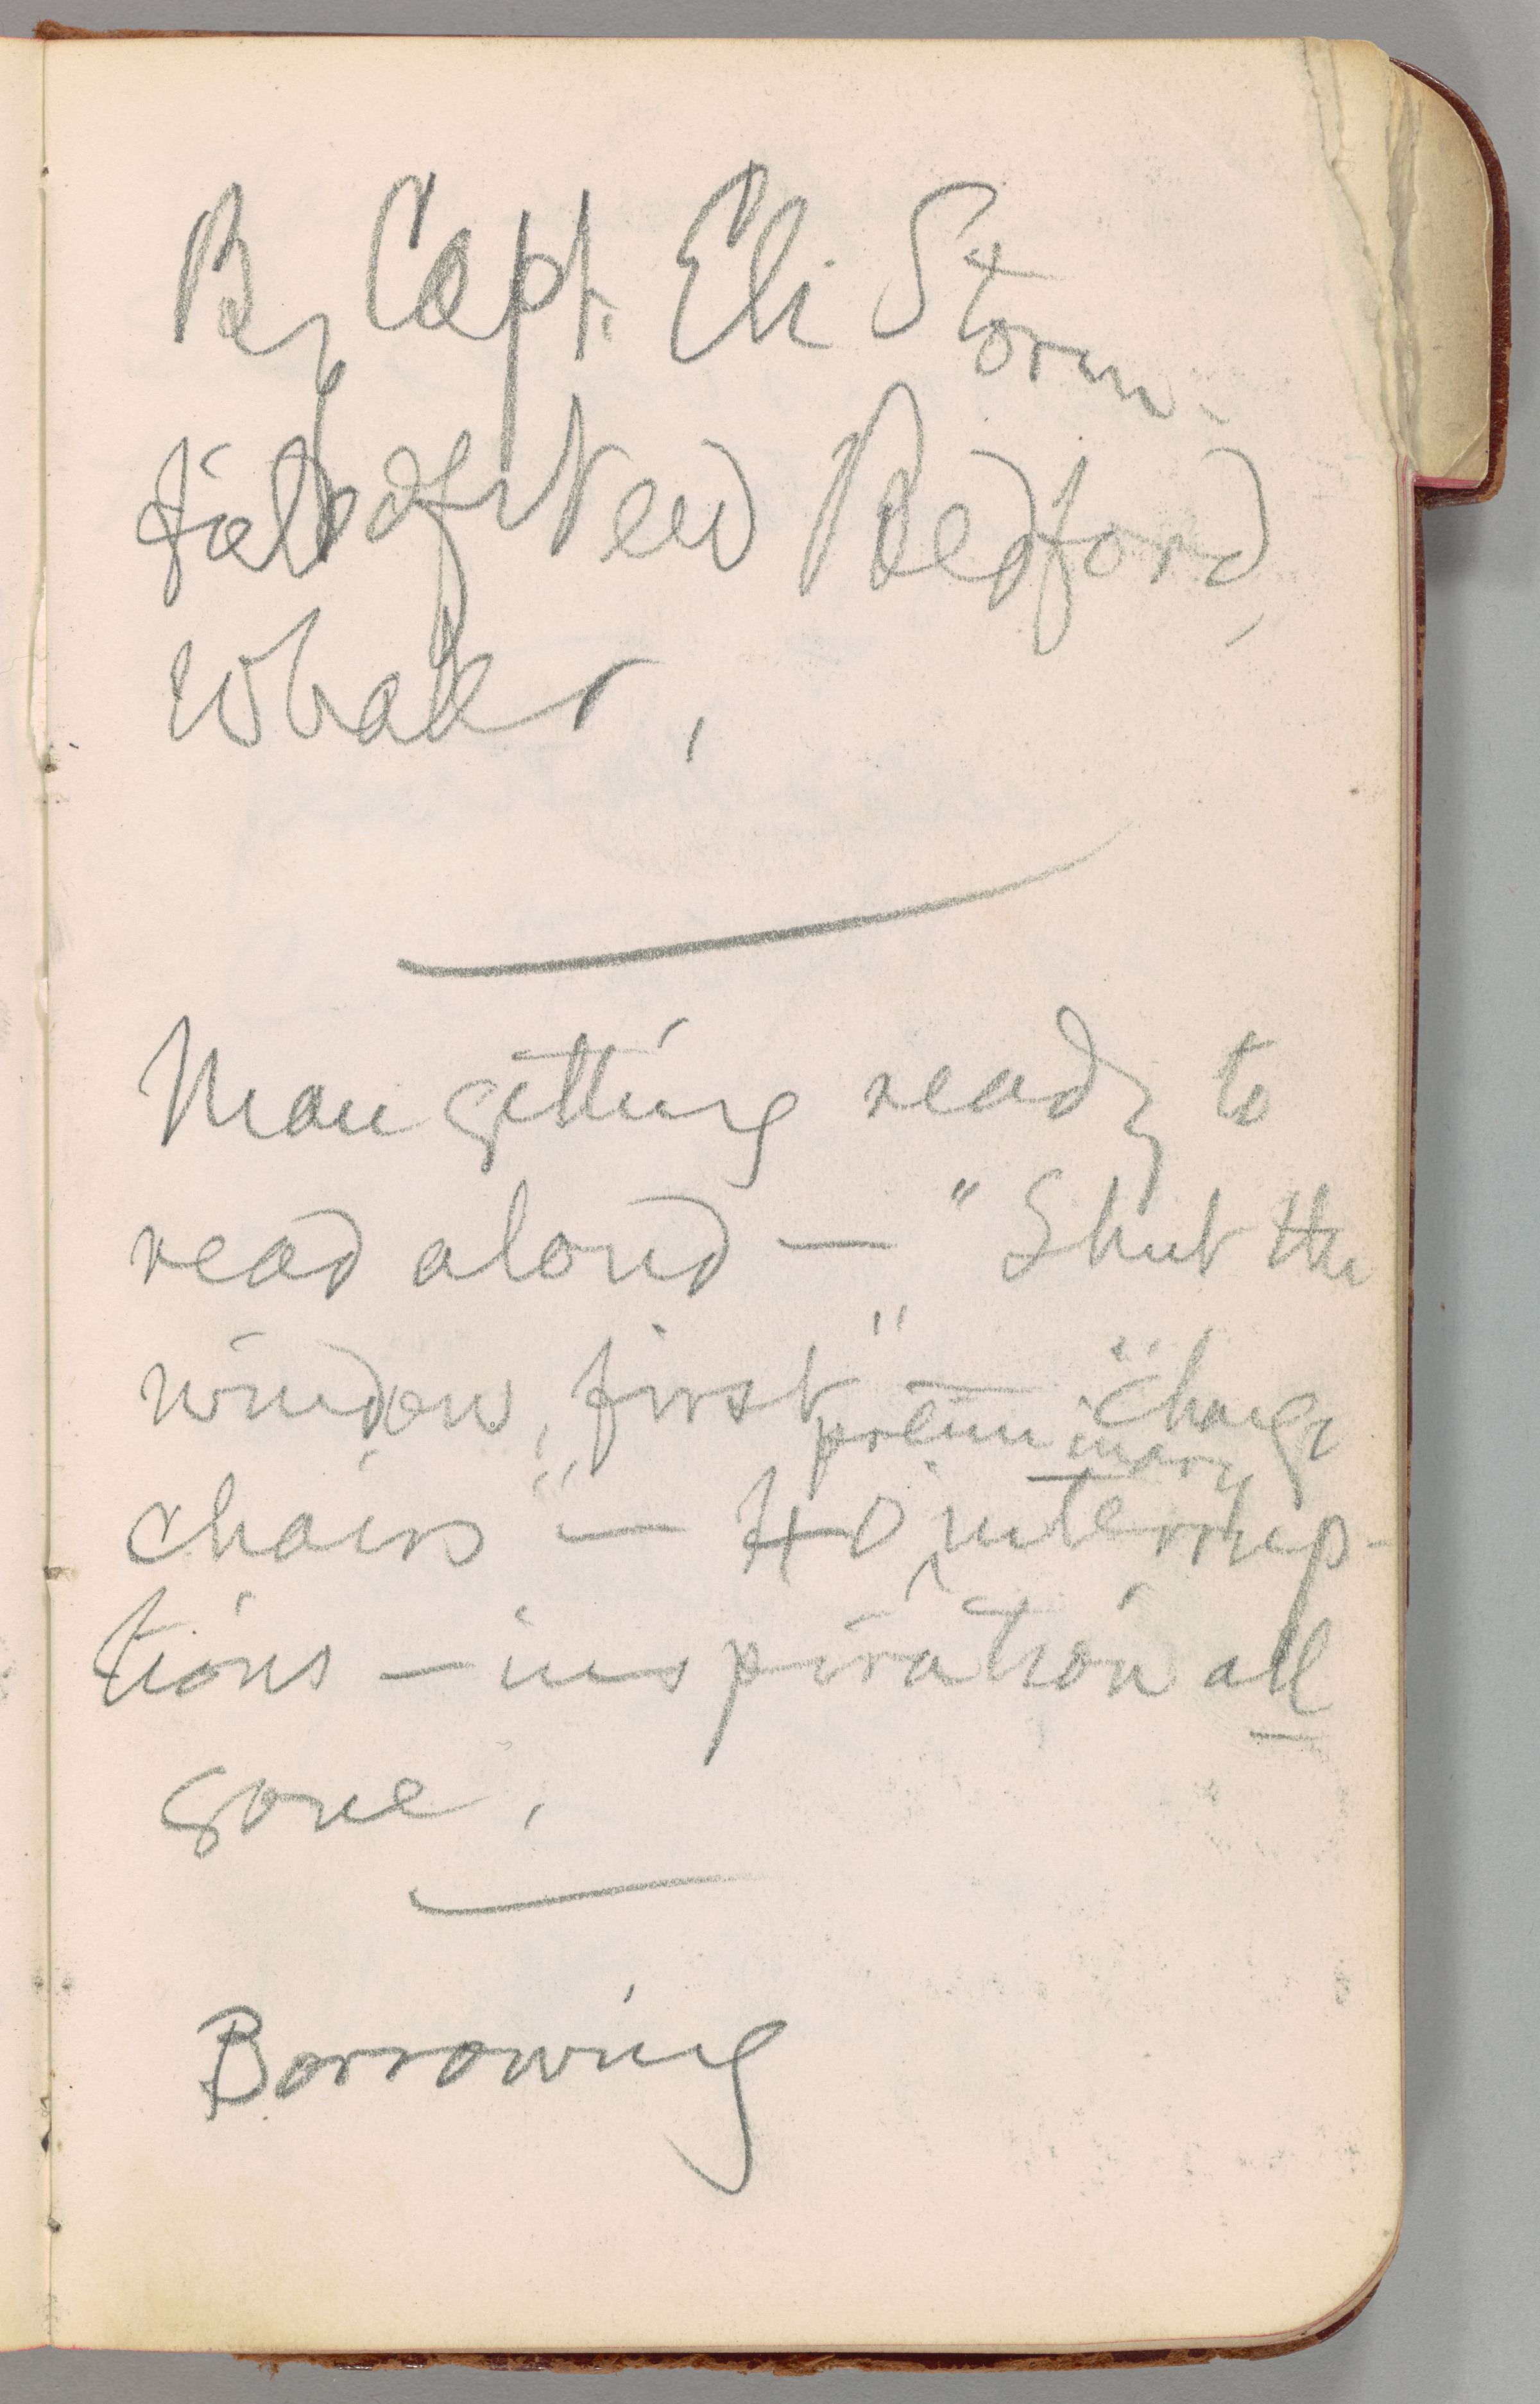 By Capt. Eli Storm-
field of New Bedford,
whaler.
Man getting ready to
read aloud — "Shut the
window, first" — "Change
chairs" — 40 preliminary interrup-
tions — inspiration all
gone.
Borrowing